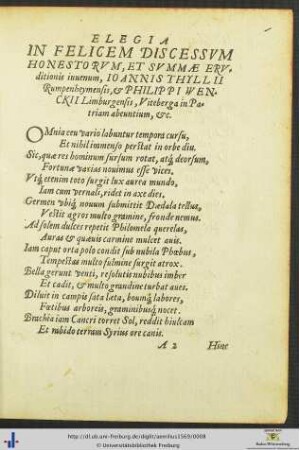 ELEGIA
IN FELICEM DISCESSVM
HONESTORVM, ET SVMMÆ ERV-
ditionis iuuenum, IOANNIS THYLLII
Rumpenheymensis, & PHILIPPI WEN-
CKII Limburgensis, Viteberga in Pa-
triam abeuntium, &c.
OMnia ceu vario labuntur tempora cursu,
Et nihil immenso perstat in orbe diu.
Sic, quæ res hominum sursum rotat, atq; deorsum,
Fortunæ varias nouimus esse vices.
Vtq; etenim toto surgit lux aurea mundo,
Iam cum vernali, ridet in axe dies.
Germen vbiq; nouum submittit Dædala tellus,
Vestit agros multo gramine, fronde nemus.
Ad solem dulces repetit Philomela querelas,
Auras & quæuis carmine mulcet auis.
Iam caput orta polo condit sub nubila Phœbus,
Tempestas multo fulmine surgit atrox.
Bella gerunt venti, resolutis nubibus imber
Et cadit, & multo grandine turbat aues.
Diluit in campis sata læta, boumq; labores,
Fœtibus arboreis, graminibusq; nocet.
Brachia iam Cancri torret Sol, reddit hiulcam
Et rabido terram Syrius ore canis.
A 2 Hinc
http://dl.ub.uni-freiburg.de/diglit/aemilius1569/0008
© Universitätsbibliothek Freiburg